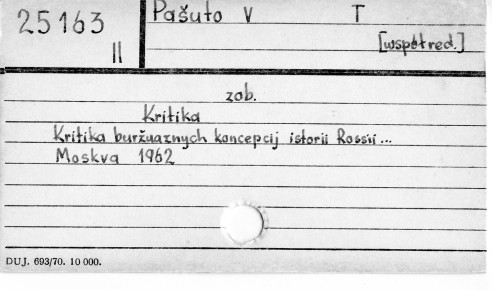 25163
II
Pašuto V T
[współred.]
zob.
Kritika
Kritika buržuaznych koncepcij istorii Rossii...
Moskva 1962
DUJ. 693/70. 10 000.